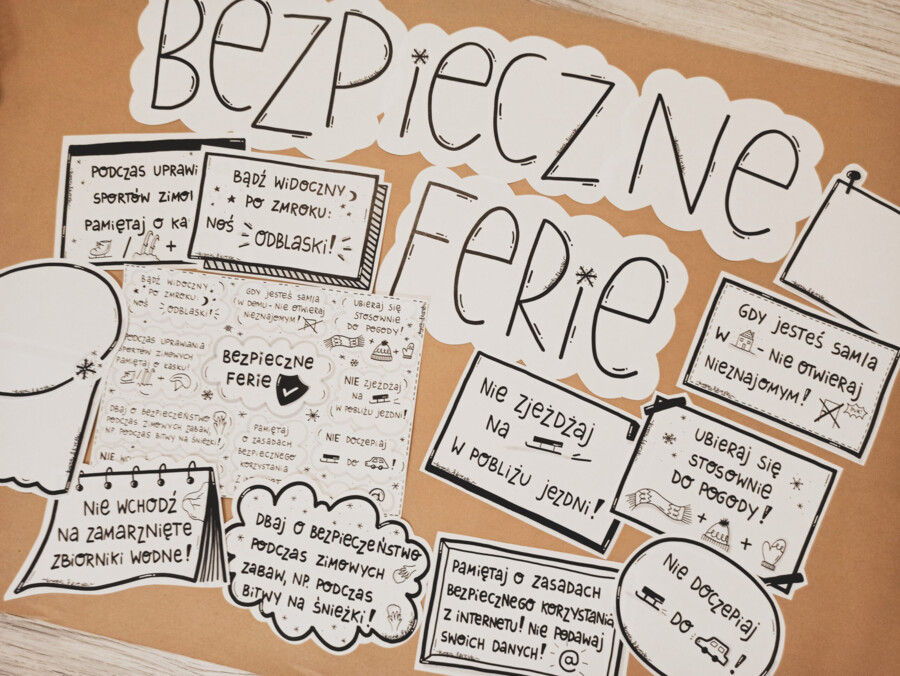 BEZPIECZNE
FERIE
PODCZAS UPRAWI
SPORTÓW ZIMO
PAMIĘTAJ O KA
+
BĄDŹ WIDOCZNY
PO ZMROKU:
NOŚ ODBLASKI!
BĄDŹ WIDOCZNY
PO ZMROKU:
NOŚ ODBLASKI!
GDY JESTEŚ SAM/A
W DOMU - NIE OTWIERAJ
NIEZNAJOMYM!
UBIERAJ SIĘ
STOSOWNIE
DO POGODY!
+ +
PODCZAS UPRAWIANIA
SPORTÓW ZIMOWYCH
PAMIĘTAJ O KASKU!
+
BEZPIECZNE
FERIE
NIE ZJEŻDŻAJ
NA
W POBLIŻU JEZDNI!
DBAJ O BEZPIECZEŃSTWO
PODCZAS ZIMOWYCH
ZABAW, NP. PODCZAS BITWY NA ŚNIEŻKI!
PAMIĘTAJ
O ZASADACH
BEZPIECZNEGO
KORZYSTANIA
Z INTERNETU
NIE DOCZEPIAJ
DO !
NIE
GDY JESTEŚ SAM/A
W - NIE OTWIERAJ
NIEZNAJOMYM!
NIE ZJEŻDŻAJ
NA
W POBLIŻU JEZDNI!
UBIERAJ SIĘ
STOSOWNIE
DO POGODY!
+ +
NIE WCHODŹ
NA ZAMARZNIĘTE
ZBIORNIKI WODNE!
DBAJ O BEZPIECZEŃSTWO
PODCZAS ZIMOWYCH
ZABAW, NP. PODCZAS
BITWY NA ŚNIEŻKI!
PAMIĘTAJ O ZASADACH
BEZPIECZNEGO KORZYSTANIA
Z INTERNETU! NIE PODAWAJ
SWOICH DANYCH! @
NIE DOCZEPIAJ
DO !